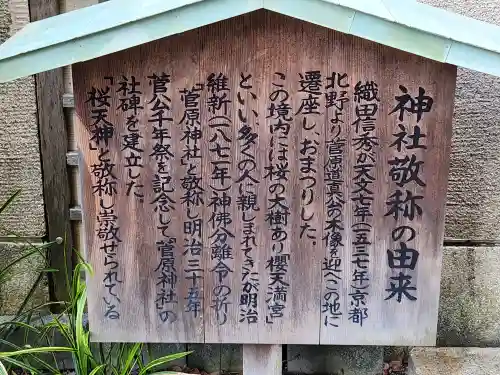 神社敬称の由来
織田信秀が天文七年(一五三七年)京都
北野より菅原道真公の木像を迎へこの地に
遷座し、おまつりした。
この境内には桜の大樹あり櫻天満宮」
といい多くの人に親しまれてきたが明治
維新(一八七一年)神佛分離令の折り
「菅原神社と敬称し明治三十五年
菅公千年祭を記念して「菅原神社」の
社碑を建立した。
「桜天神」と敬称し崇敬せられている